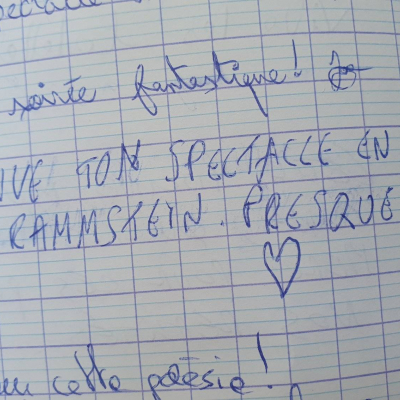 spectacle
soirée fantastique!
IVE TON SPECTACLE EN
RAMMSTEIN. PRESQUE
cette poésie!